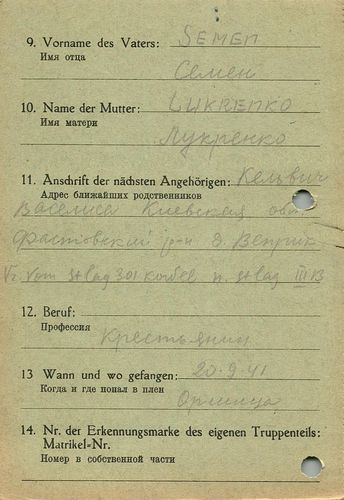 9. Vorname des Vaters: SEMEN
Имя отца
Семен
10. Name der Mutter: LUKRENKO
Имя матери
Лукренко
11. Anschrift der nächsten Angehörigen:
Адрес ближайших родственников
Василиса Киевская обл
Фастовский р-н д. Веприк
Vom Stlag 301 kowel n. Stlag III B
12. Beruf:
Профессия
Крестьянин
13 Wann und wo gefangen: 20.9.41
Когда и где попал в плен
Оржица
14. Nr. der Erkennungsmarke des eigenen Truppenteils:
Matrikel=Nr.
Номер в собственной части